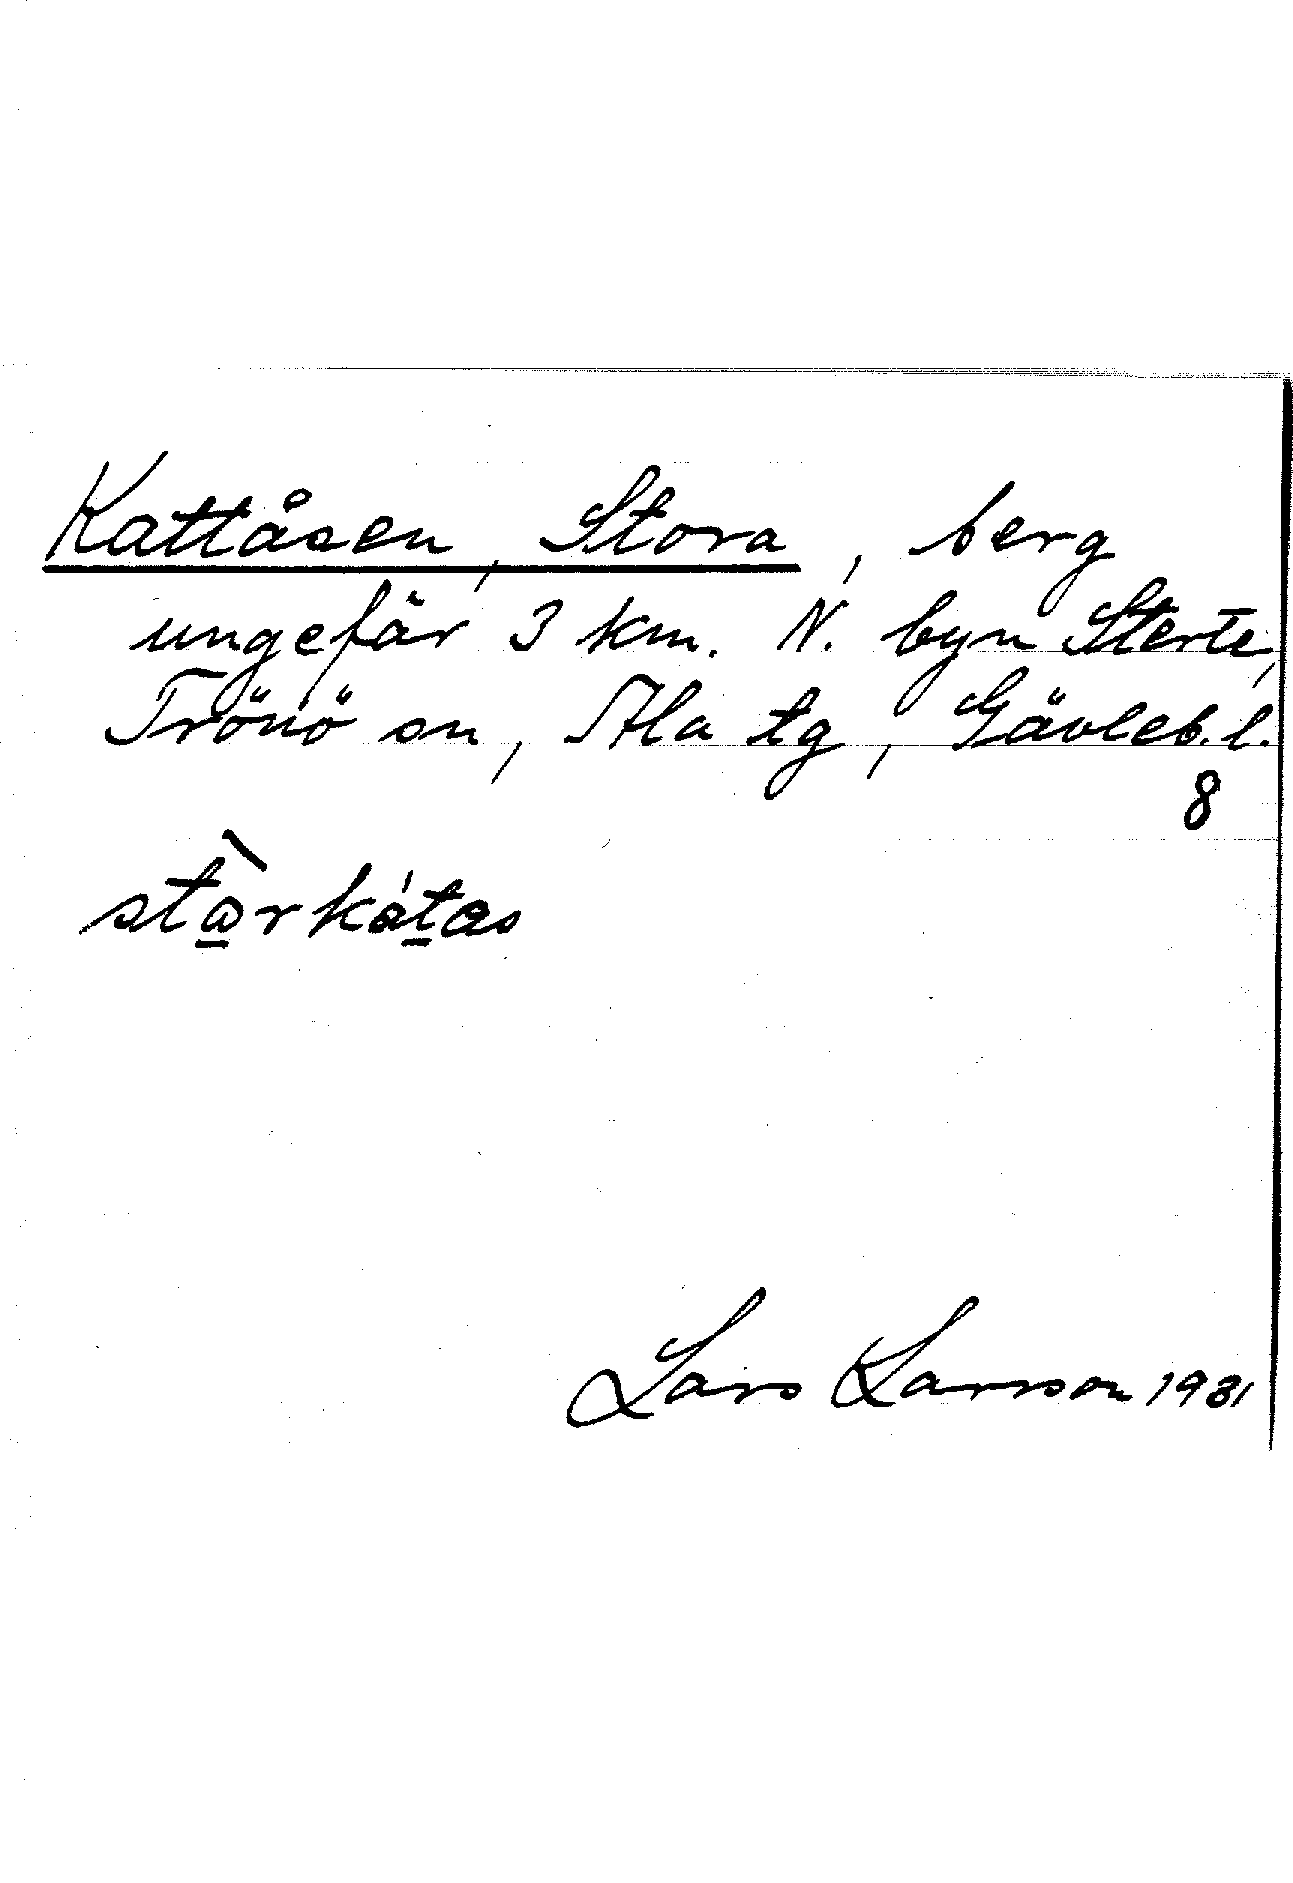 Kattåsen, Stora, berg
ungefär 3 km. N. byn Sterte,
Trönö sn, Ala tg, Gävleb. l.
8
Lars Larsson 1931